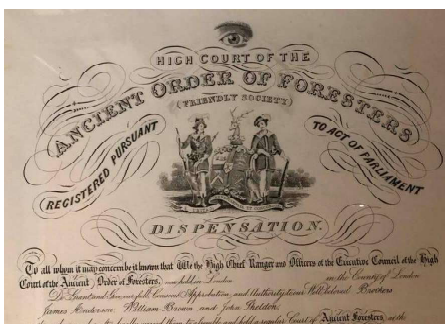 HIGH COURT OF THE
ANCIENT ORDER OF FORESTERS
(FRIENDLY SOCIETY)
REGISTERED PURSUANT
TO ACT OF PARLIAMENT
DISPENSATION.
To all whom it may concern be it known that We the High Chief Ranger and Officers of the Executive Council of the High
Court of the Ancient Order of Foresters, now holden London in the County of London
Do Grant and Give our full Consent Approbation and Authority to our Well Beloved Brothers
James Anderson William Brown and John Sheldon,
and hold a regular Court of Ancient Foresters,